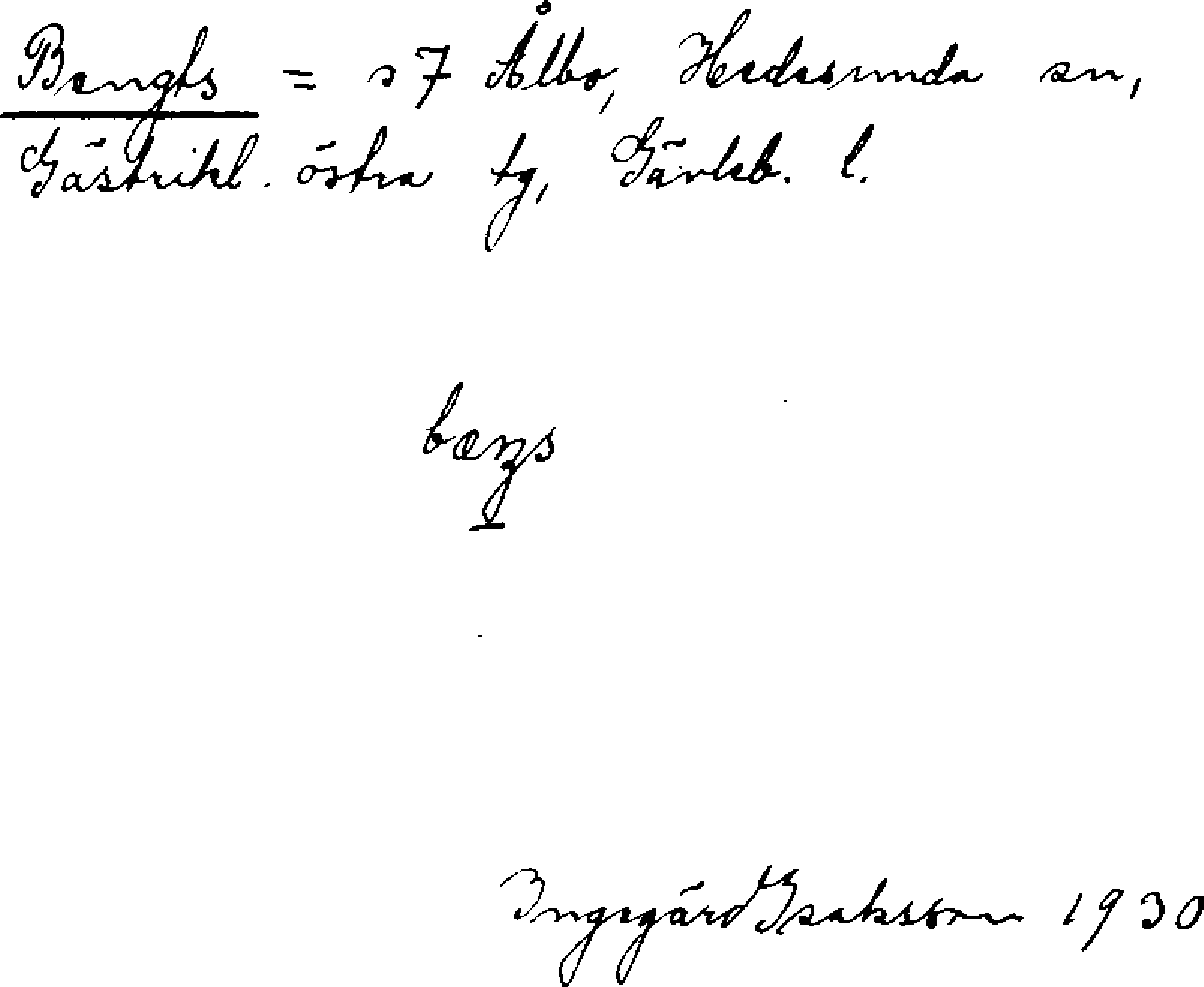 Bengts = s 7 Ålbo, Hedesunda sn,
Gästrikl. östra tg, Gävleb. l.
Ingegärd Isaksson 1930